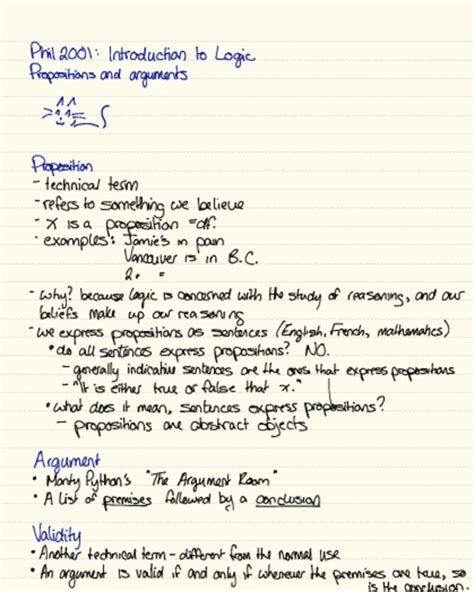 Phil 2001: Introduction to Logic
Propositions and arguments
Proposition
- technical term
- refers to something we believe
- x is a proposition =df.
• examples: Jamie's in pain
Vancouver is in B.C.
2. =
- why? because logic is concerned with the study of reasoning, and our
beliefs make up our reasoning
- we express propositions as sentences (English, French, mathematics)
• do all sentences express propositions? NO.
- generally indicative sentences are the ones that express propositions
- "It is either true or false that x."
• what does it mean, sentences express propositions?
- propositions are abstract objects
Argument
• Monty Python's "The Argument Room"
• A list of premises followed by a conclusion
Validity
• Another technical term - different from the normal use
• An argument is valid if and only if whenever the premises are true, so
is the conclusion.